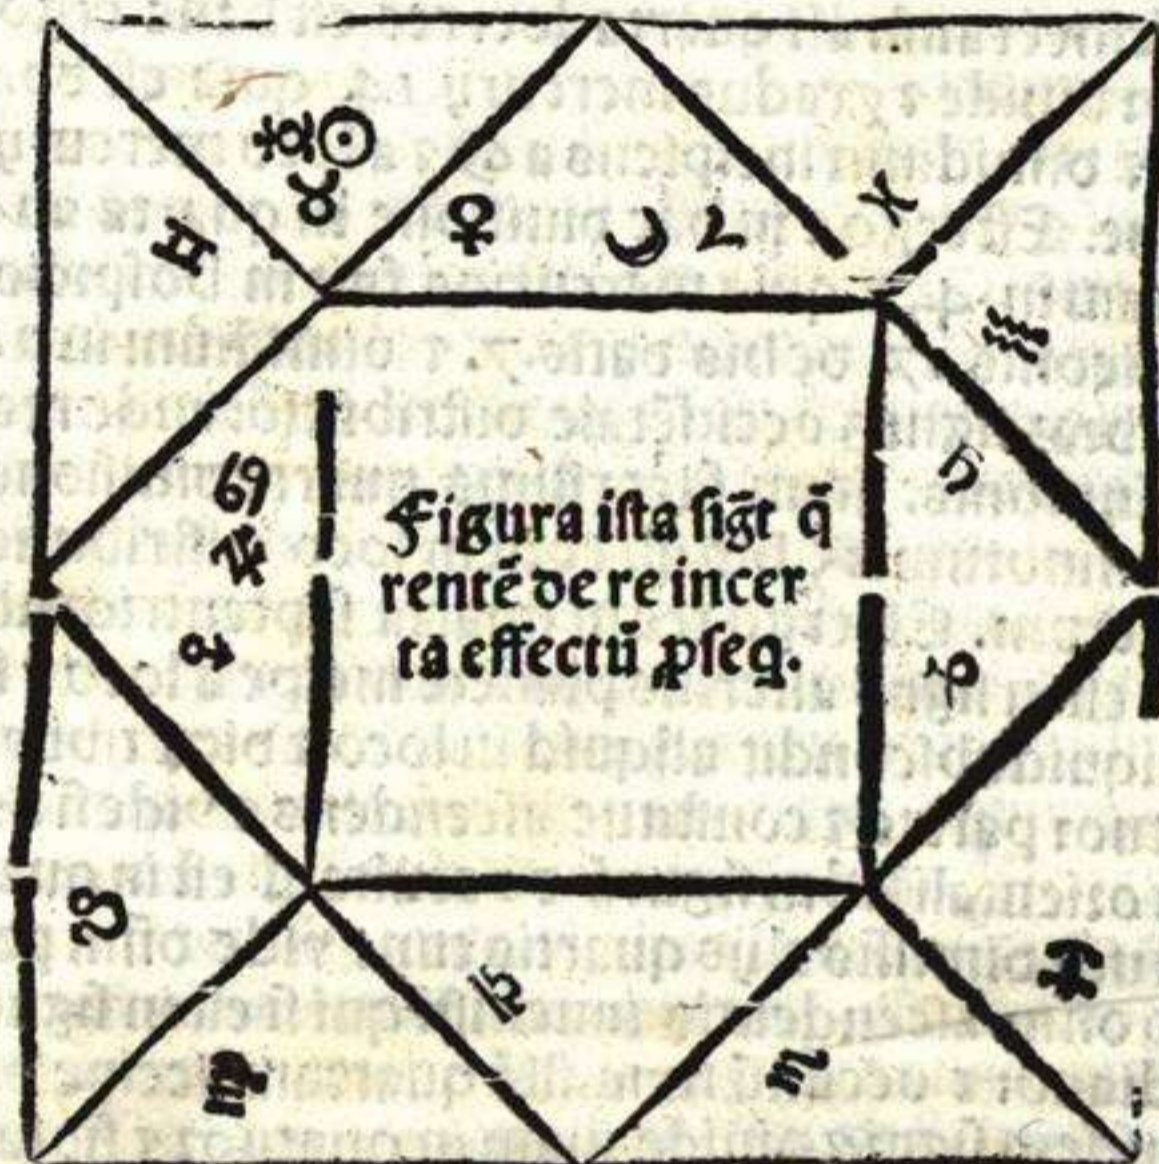 Figura iſta ſigt̄ q̄
rentē de re incer
ta effectū ꝓſeq.